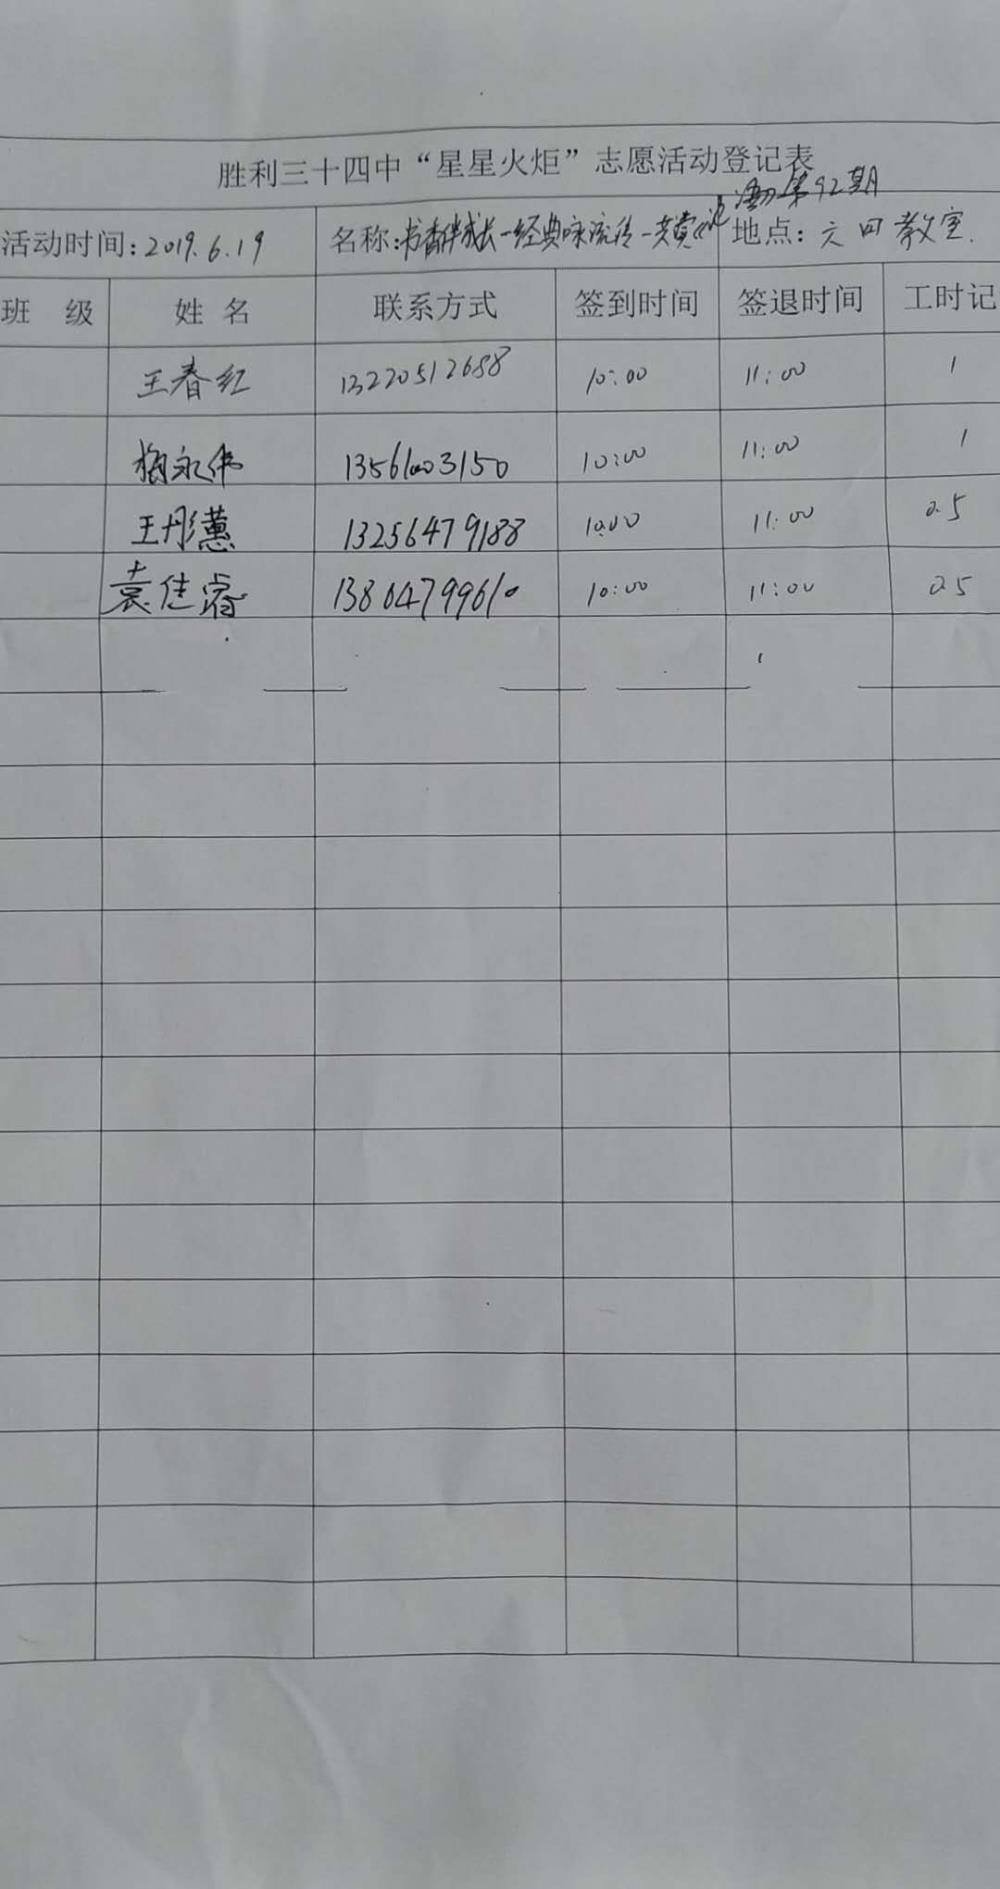 胜利三十四中“星星火炬”志愿活动登记表
活动第92期
活动时间:2019.6.19 名称:书香伴成长-经典咏流传-共赏 地点:六四教室.
班 级 姓 名 联系方式 签到时间 签退时间 工时记
王春红 13220512688 10:00 11:00 1
梅永伟 13561003150 10:00 11:00 1
王彤蕙 13256479188 10:00 11:00 0.5
袁佳睿 10:00 11:00 0.5